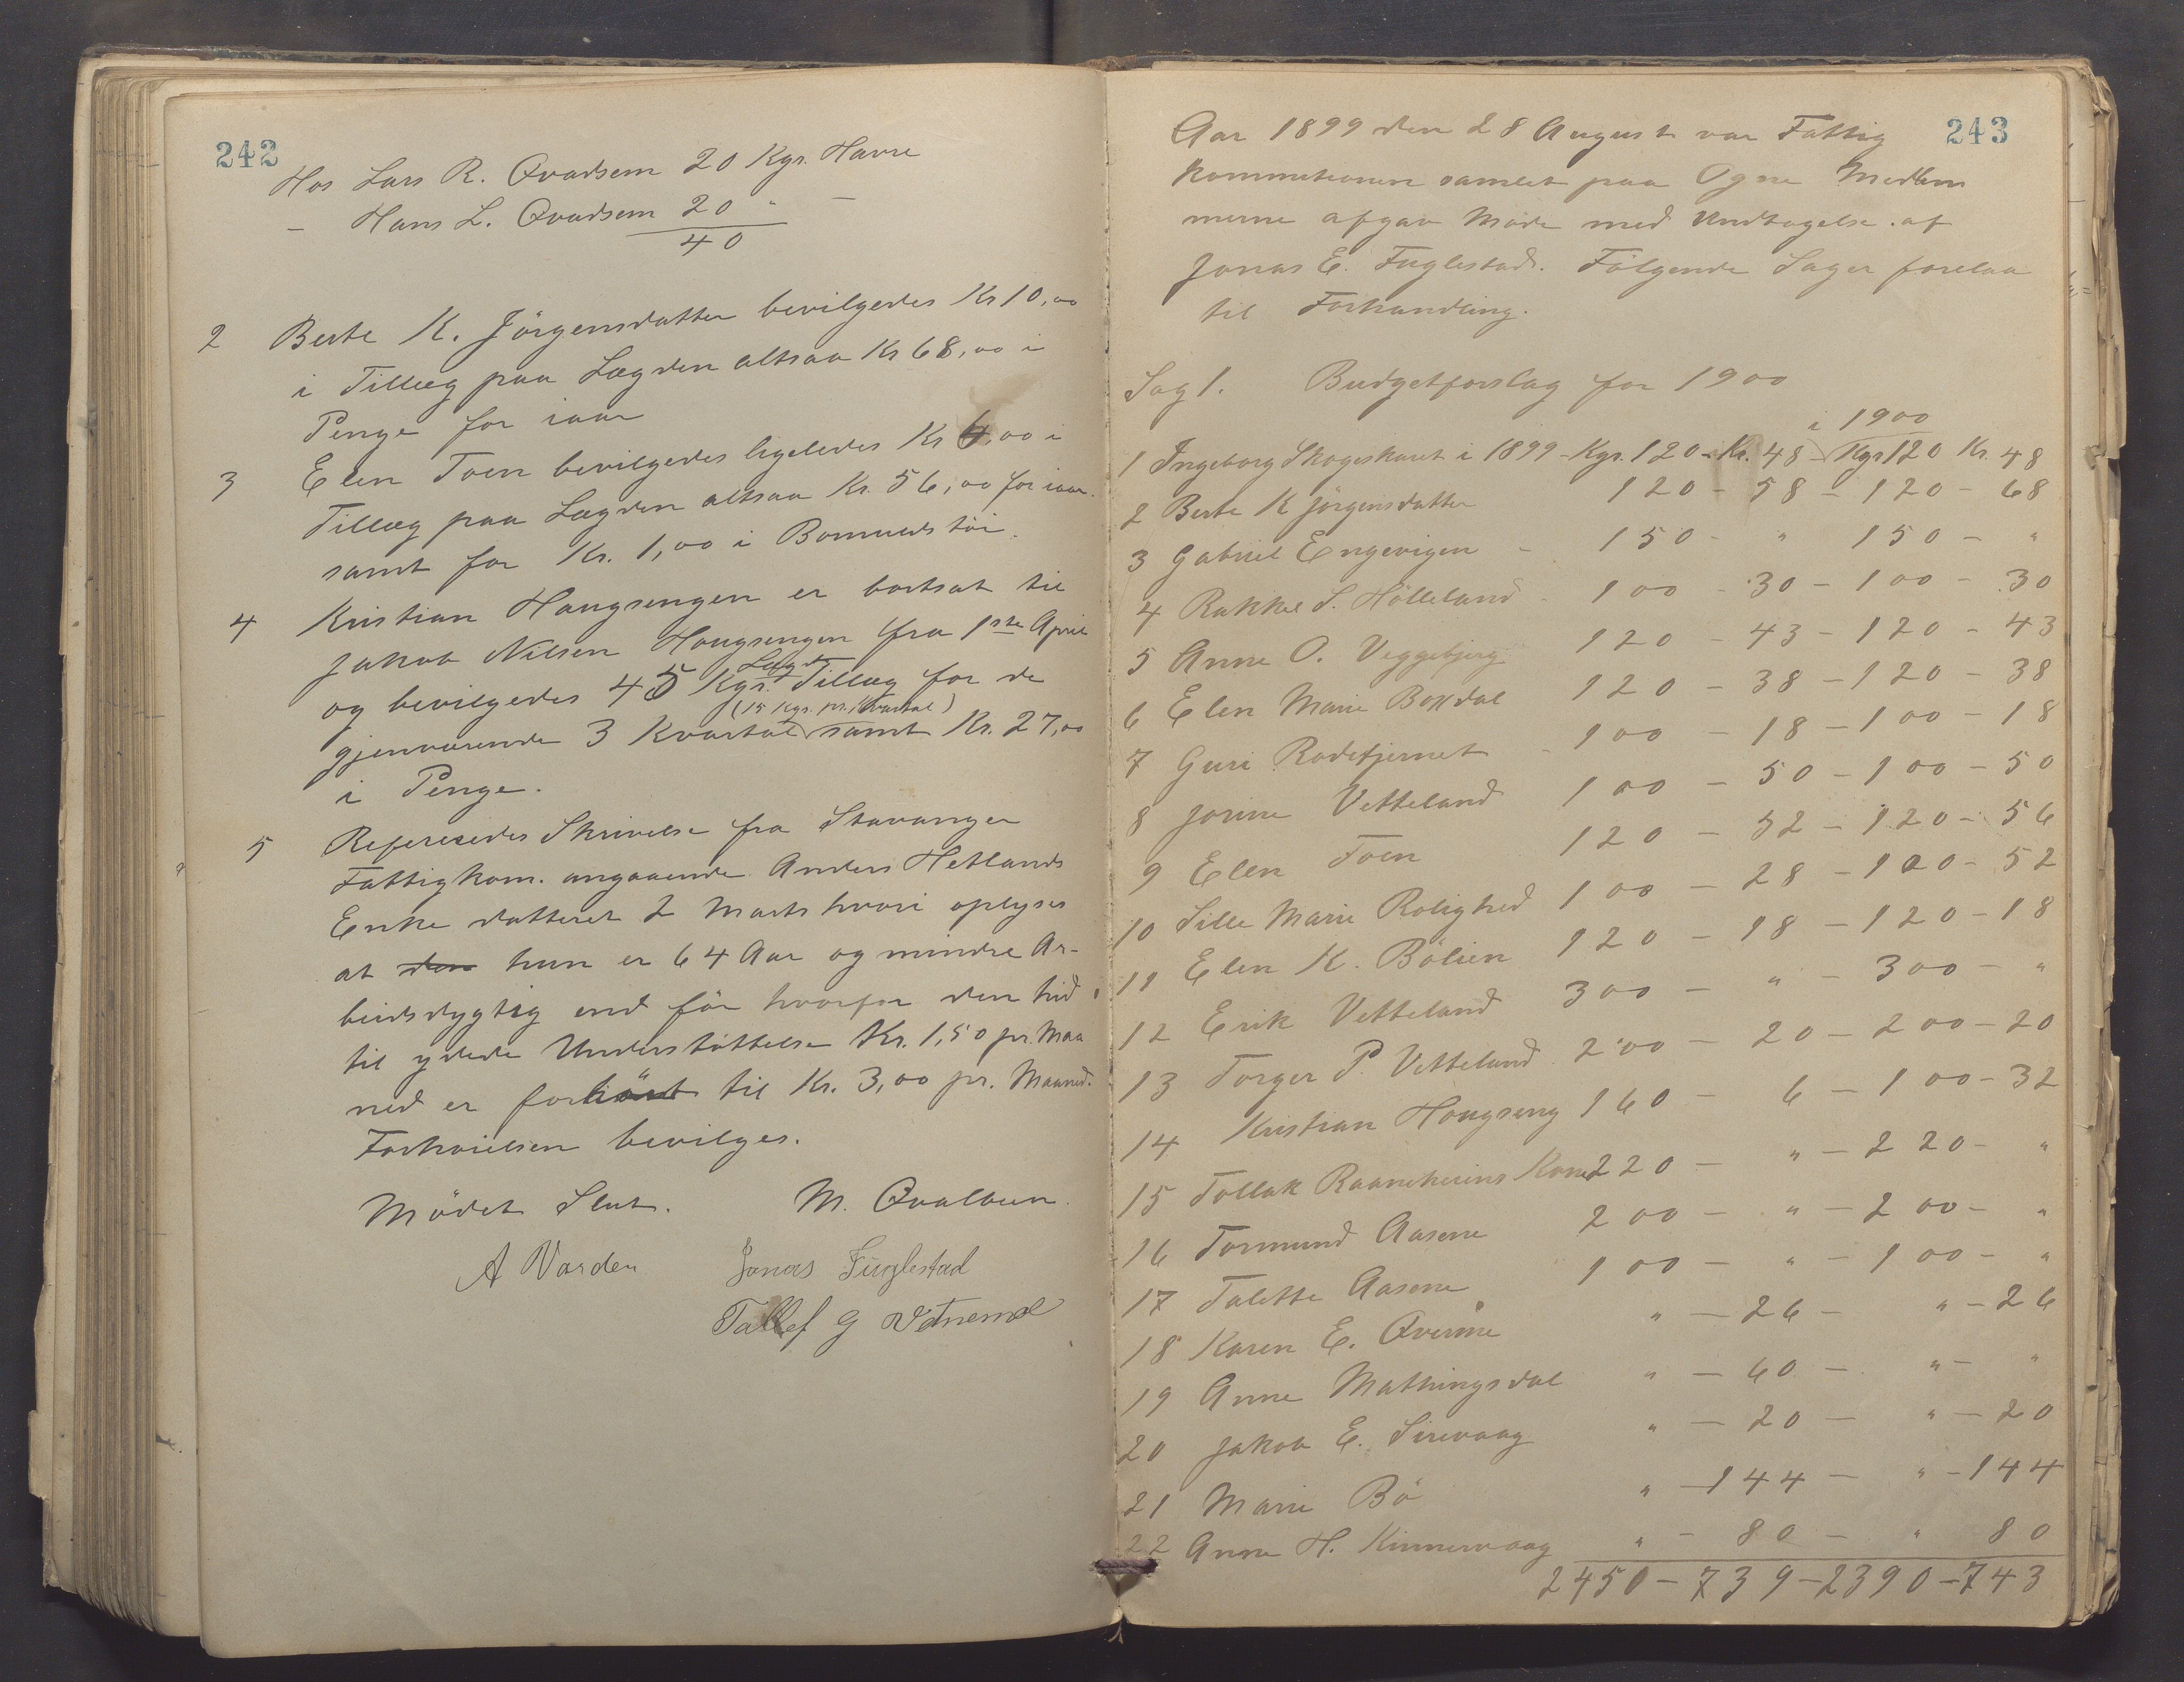 242
Hos Lars R. Qvadsem 20 Kgr. Havre
– Hans L. Qvadsem 20 " –
40
2 Berte K. Jörgensdatter bevilgedes Kr 10,00
i Tillæg paa Lægden altsaa Kr 68,00 i
Penge for iaar
3 Elen Toen bevilgedes ligeledes Kr 4,00 i
Tillæg paa Lægden altsaa Kr. 56,00 for iaar.
samt for Kr. 1,00 i Bomuldstöi.
4 Kristian Haugsengen er bortsat til
Jakob Nilsen Haugsengen fra 1ste April
og bevilgedes 45 Kgr. Lægd Tillæg for de
gjenværende 3 Kvartal (15 Kgr. pr. Kvartal) samt Kr. 27,00
i Penge.
5 Refereredes Skrivelse fra Stavanger
Fattigkom. angaaende Anders Hetlands
Enke datteret 2 Marts hvori oplyses
at den hun er 64 Aar og mindre Ar-
beidsdygtig end för hvorfor den hid
til ydede Understöttelse Kr. 1,50 pr. Maa
ned er forhöiet til Kr. 3,00 pr. Maaned.
Forhöielsen bevilges.
Mödet Slut. M. Qvalbein
A Varden Jonas Fuglestad
Tallef G Vetnemo
243
Aar 1899 den 28 August var Fattig
kommisionen samlet paa Ogne Medlem
merne afgav Möde med Undtagelse af
Jonas E. Fuglestad. Fölgende Sager forelaa
til Forhandling.
Sag 1. Budgetforslag for 1900
i 1900
1 Ingeborg Skogeskaret i 1899 - Kgr. 120 - Kr. 48 - Kgr 120 Kr. 48
2 Berte K Jörgensdatter 120 - 58 - 120 - 68
3 Gabriel Engevigen - 150 - " 150 - "
4 Rakkel S. Hölleland - 100 - 30 - 100 - 30
5 Anne O. Veggebjerg 120 - 43 - 120 - 43
6 Elen Marie Boxdal 120 - 38 - 120 - 38
7 Guri Rodetjernet - 100 - 18 - 100 - 18
8 Jorine Vetteland 100 - 50 - 100 - 50
9 Elen Toen 120 - 52 - 120 - 56
10 Sille Marie Rolighed 100 - 28 - 100 - 52
11 Elen K. Bölien 120 - 18 - 120 - 18
12 Erik Vetteland 300 - " - 300 - "
13 Torger P. Vetteland 200 - 20 - 200 - 20
14 Kristian Haugseng 160 - 6 - 100 - 32
15 Tollak Rauneheiens Kone 220 - " - 220 - "
16 Tormund Aasene 200 - " - 200 - "
17 Talette Aasene 100 - " - 100 - "
18 Karen E. Qverme " - 26 - " - 26
19 Anne Mathingsdal " - 60 - " - "
20 Jakob E. Sirevaag " - 20 - " - 20
21 Marie Bö " - 144 - " - 144
22 Anne H. Kinnervaag " - 80 - " 80
2450 - 739 - 2390 - 743